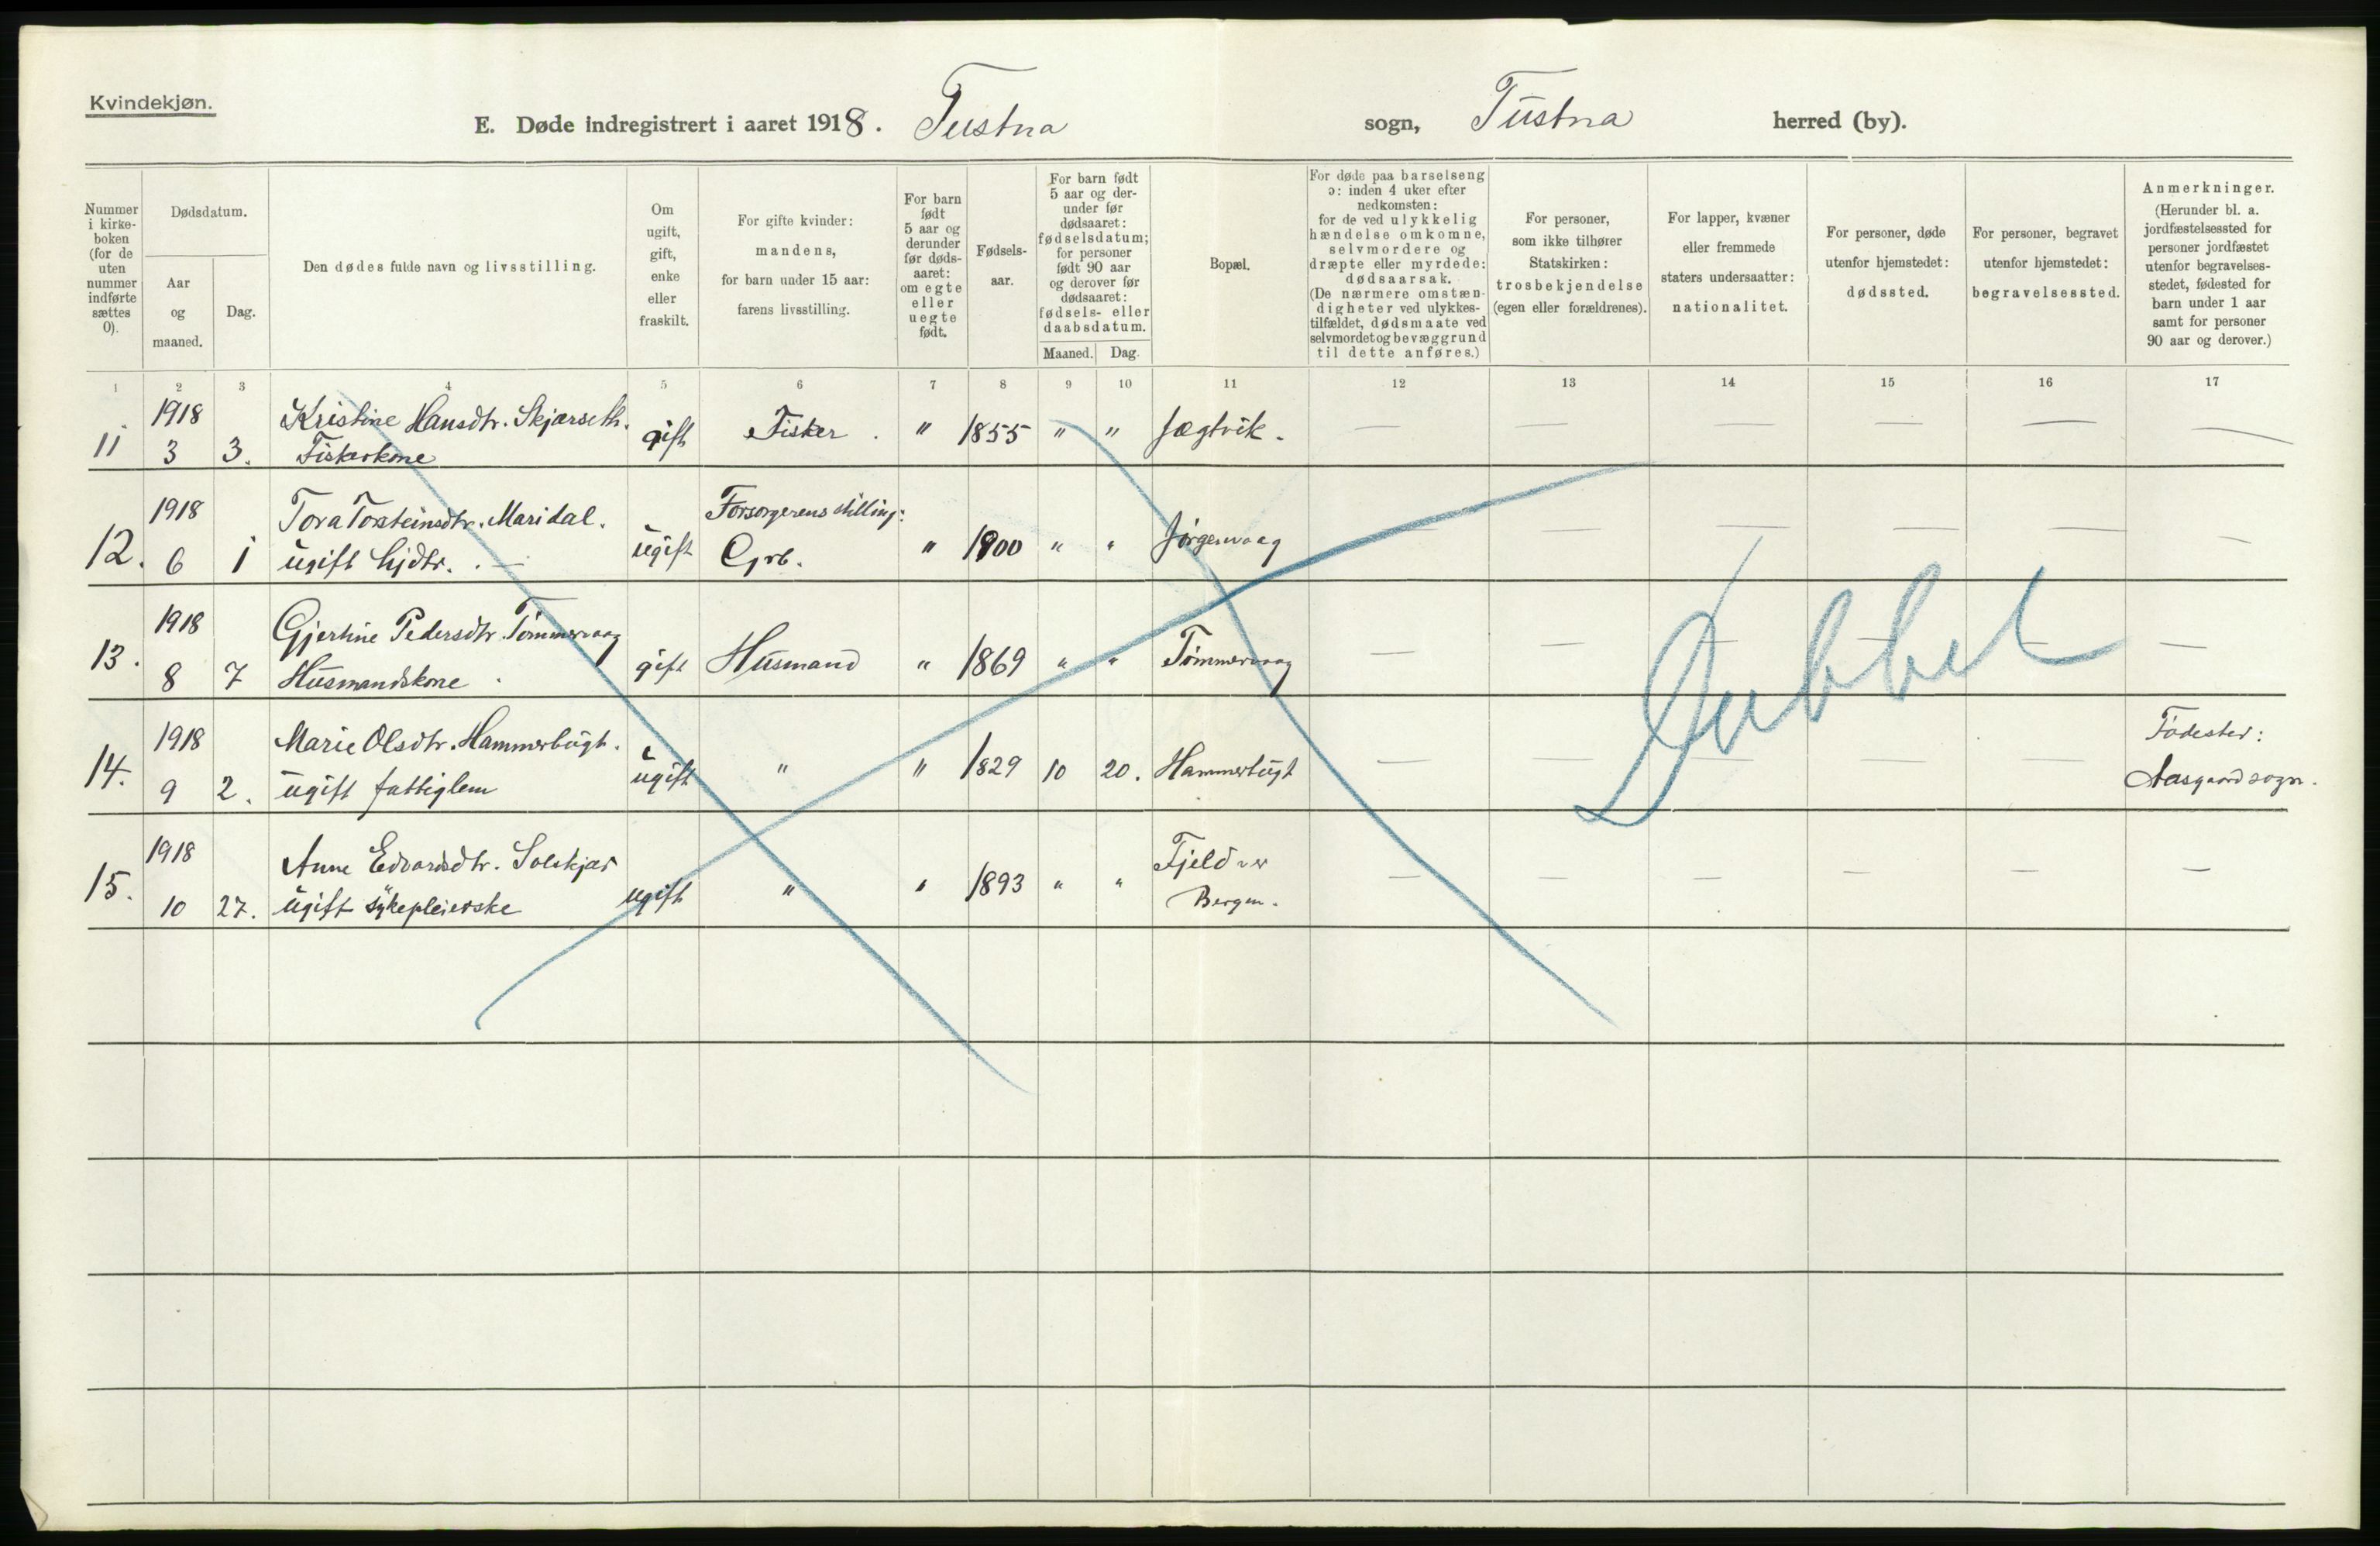 Kvindekjøn.
E. Døde indregistrert i aaret 1918. Tustna sogn, Tustna herred (by).
Nummer i kirke-boken (for de uten nummer indførte sættes 0).
Dødsdatum.
Aar og maaned.
Dag.
Den dødes fulde navn og livsstilling.
Om ugift, gift, enke eller fraskilt.
For gifte kvinder: mandens, for barn under 15 aar: farens livsstilling.
For barn født 5 aar og derunder før døds-aaret: om egte eller uegte født.
Fødsels-aar.
For barn født 5 aar og der-under før dødsaaret: fødselsdatum; for personer født 90 aar og derover før dødsaaret: fødsels- eller daabsdatum.
Maaned. Dag.
Bopæl.
For døde paa barselseng ɔ: inden 4 uker efter nedkomsten: for de ved ulykkelig hændelse omkomne, selvmordere og dræpte eller myrdede: dødsaarsak. (De nærmere omstæn-digheter ved ulykkes-tilfældet, dødsmaate ved selvmordet og bevæggrund til dette anføres.)
For personer, som ikke tilhører Statskirken: trosbekjendelse (egen eller forældrenes).
For lapper, kvæner eller fremmede staters undersaatter: nationalitet.
For personer, døde utenfor hjemstedet: dødssted.
For personer, begravet utenfor hjemstedet: begravelsessted.
Anmerkninger. (Herunder bl. a. jordfæstelsessted for personer jordfæstet utenfor begravelses-stedet, fødested for barn under 1 aar samt for personer 90 aar og derover.)
1 2 3 4 5 6 7 8 9 10 11 12 13 14 15 16 17
11 1918 3 3. Kristine Hansdtr. Skjærseth. Fiskerkone gift Fisker. " 1855 " " Jægtvik. — — — — — —
12. 1918 6 1 Tora Torsteinsdtr. Maridal. ugift Gjdtr. . — ugift Forsørgerens stilling: Grb. " 1900 " " Jørgenvaag — — — — — —
13. 1918 8 7 Gjertine Pedersdtr. Tømmervaag Husmandskone. gift Husmand " 1869 " " Tømmervaag — — — — — —
14. 1918 9 2. Marie Olsdtr. Hammerbugt. ugift fattiglem ugift " " 1829 10 20. Hammerbugt — — — — — Fødested: Aasgaard sogn.
15. 1918 10 27. Anne Edvardsdtr. Solskjær ugift sykepleierske ugift " " 1893 " " Bergen. — — — — — —
Dubbet